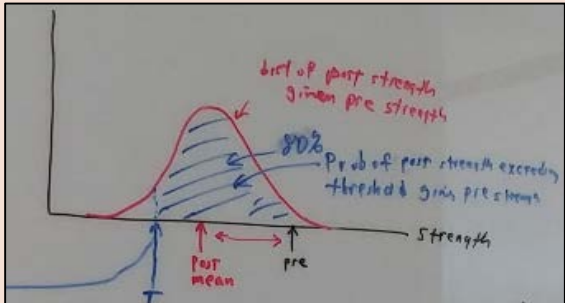 dist of post strength
given pre strength
80%
Prob of post strength exceeding
threshold given pre streng
strength
post
mean
pre
T